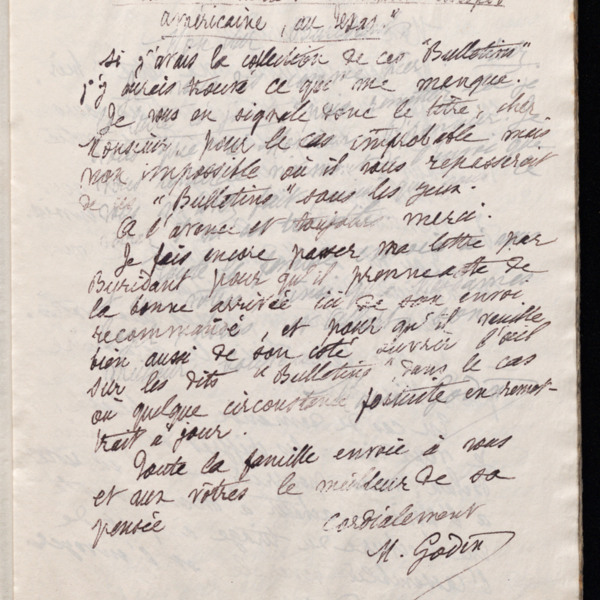 américaine, au Texas"
Si j'avais la collection de ces "Bulletins"
j'y aurais trouvé ce qui me manque.
Je vous en signale donc le titre, cher
Monsieur pour le cas improbable mais
non impossible où il vous repasserait
de ces "Bulletins" sous les yeux.
A l'avance et toujours merci.
Je fais encore passer ma lettre par
Buridant pour qu'il prenne acte de
la bonne arrivée ici de son envoi
recommandé, et pour qu'il veuille
bien aussi de son côté ouvrir l'œil
sur les dits "Bulletins", dans le cas
où quelque circonstance fortuite en remet-
trait à jour.
Toute la famille envoie à vous
et aux vôtres le meilleur de sa
pensée cordialement
M. Godin